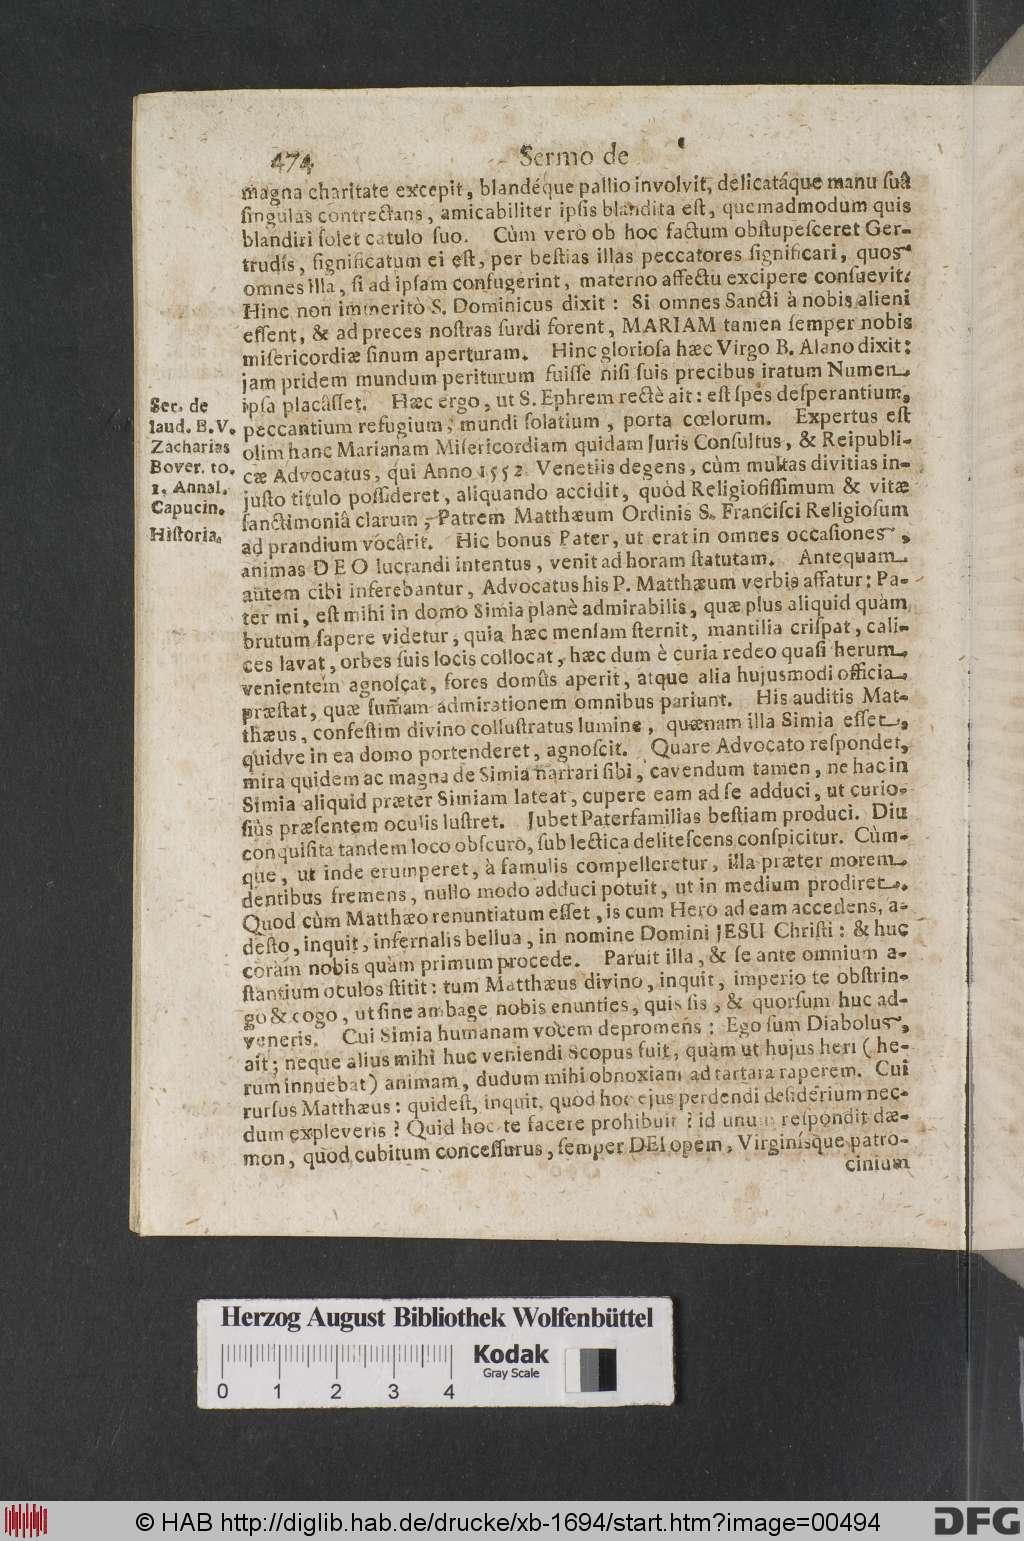 474
Sermo de
magna charitate excepit, blandéque pallio involvit, delicatáque manu ſuâ
ſingulas contrectans, amicabiliter ipſis blandita eſt, quemadmodum quis
blandiri ſolet catulo ſuo. Cùm verò ob hoc factum obſtupeſceret Ger-
trudis, ſignificatum ei eſt, per beſtias illas peccatores ſignificari, quos
omnes illa, ſi ad ipſam confugerint, materno affectu excipere conſuevit.
Hinc non immeritò S. Dominicus dixit: Si omnes Sancti à nobis alieni
eſſent, & ad preces noſtras ſurdi forent, MARIAM tamen ſemper nobis
miſericordiæ ſinum aperturam. Hinc glorioſa hæc Virgo B. Alano dixit:
jam pridem mundum periturum fuiſſe niſi ſuis precibus iratum Numen
ipſa placâſſet. Hæc ergo, ut S. Ephrem rectè ait: eſt ſpes deſperantium,
peccantium refugium, mundi ſolatium, porta cœlorum. Expertus eſt
olim hanc Marianam Miſericordiam quidam Juris Conſultus, & Reipubli-
cæ Advocatus, qui Anno 1552 Venetiis degens, cùm multas divitias in-
juſto titulo poſſideret, aliquando accidit, quòd Religioſiſſimum & vitæ
ſanctimoniâ clarum, Patrem Matthæum Ordinis S. Franciſci Religioſum
ad prandium vocârit. Hic bonus Pater, ut erat in omnes occaſiones,
animas DEO lucrandi intentus, venit ad horam ſtatutam. Antequam
autem cibi inferebantur, Advocatus his P. Matthæum verbis affatur: Pa-
ter mi, eſt mihi in domo Simia planè admirabilis, quæ plus aliquid quàm
brutum ſapere videtur, quia hæc menſam ſternit, mantilia criſpat, cali-
ces lavat, orbes ſuis locis collocat, hæc dum è curia redeo quaſi herum
venientem agnoſcat, fores domûs aperit, atque alia hujusmodi officia
præſtat, quæ ſuṁam admirationem omnibus pariunt. His auditis Mat-
thæus, confeſtim divino colluſtratus lumine, quænam illa Simia eſſet,
quidve in ea domo portenderet, agnoſcit. Quare Advocato reſpondet,
mira quidem ac magna de Simia narrari ſibi, cavendum tamen, ne hac in
Simia aliquid præter Simiam lateat, cupere eam ad ſe adduci, ut curio-
ſiùs præſentem oculis luſtret. Jubet Paterfamilias beſtiam produci. Diu
conquiſita tandem loco obſcurò, ſub lectica deliteſcens conſpicitur. Cùm-
que, ut inde erumperet, à famulis compelleretur, illa præter morem
dentibus fremens, nullo modo adduci potuit, ut in medium prodiret.
Quod cùm Matthæo renuntiatum eſſet, is cum Hero ad eam accedens, a-
deſto, inquit, infernalis bellua, in nomine Domini JESU Chriſti: & huc
coràm nobis quàm primum procede. Paruit illa, & ſe ante omnium a-
ſtantium oculos ſtitit: tum Matthæus divino, inquit, imperio te obſtrin-
go & cogo, ut ſine ambage nobis enunties, quis ſis, & quorſum huc ad-
veneris. Cui Simia humanam vocem depromens: Ego ſum Diabolus,
ait; neque alius mihi huc veniendi Scopus fuit, quàm ut hujus heri (he-
rum innuebat) animam, dudum mihi obnoxiam ad tartara raperem. Cui
rurſus Matthæus: quid eſt, inquit, quod hoc ejus perdendi deſiderium nec-
dum expleveris? Quid hoc te facere prohibuit? id unum reſpondit dæ-
mon, quod cubitum conceſſurus, ſemper DEI opem, Virginíſque patro-
cinium
Ser. de
laud. B. V.
Zacharias
Bover. to.
1. Annal.
Capucin.
Hiſtoria.
Herzog August Bibliothek Wolfenbüttel
Kodak
Gray Scale
0 1 2 3 4
© HAB http://diglib.hab.de/drucke/xb-1694/start.htm?image=00494
DFG